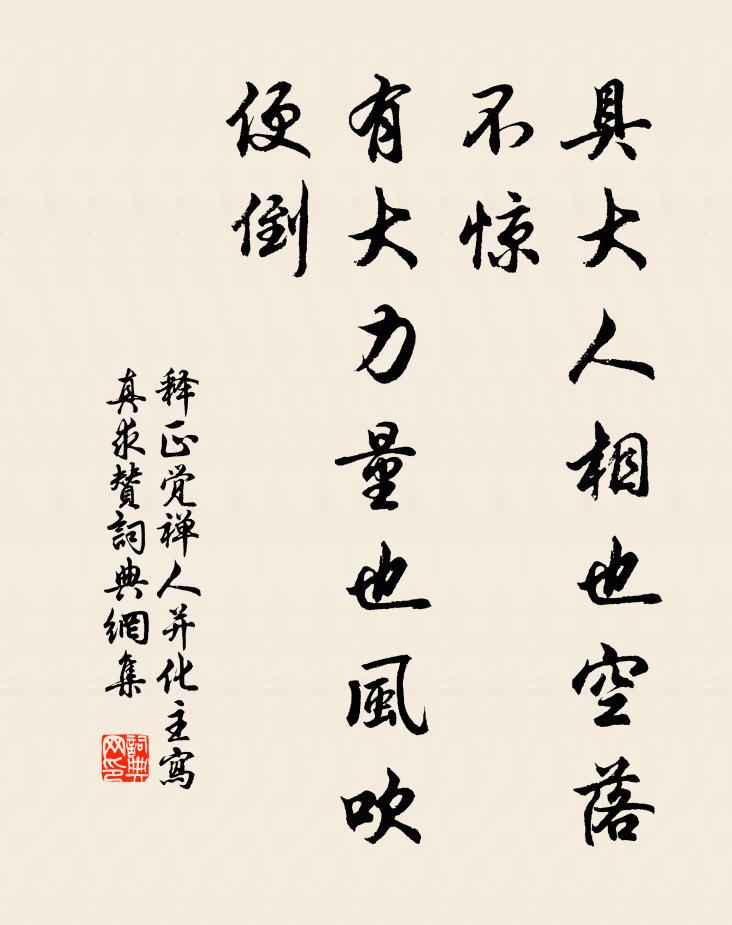 具大人相也空落
不惊
有大力量也風吹
便倒
释正觉禅人并化主寫
真求赞詞典網集
詞典
网印